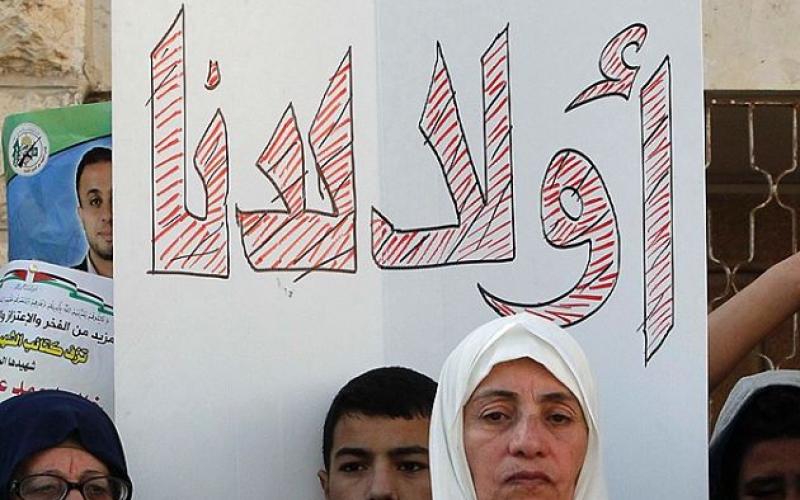 أولالدنا
مزيد من الفخر والاعتزاز
تزف كتائب
شهيدها